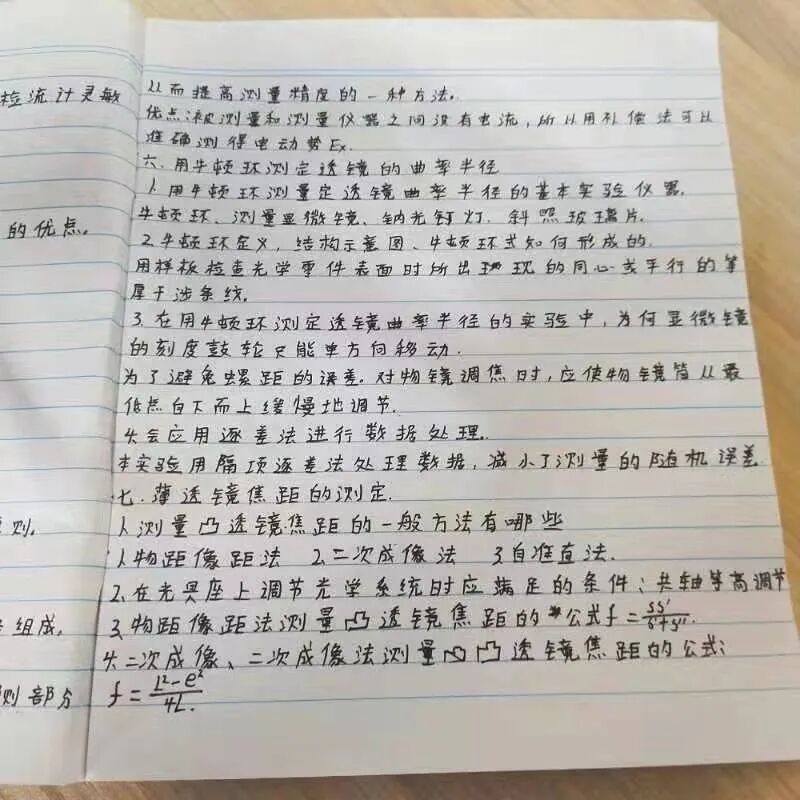 检流计灵敏
的优点。
则.
组成,
则部分
从而提高测量精度的一种方法。
优点:被测量和测量仪器之间没有电流,所以用补偿法可以
准确测得电动势Ex.
六.用牛顿环测定透镜的曲率半径
1.用牛顿环测量定透镜曲率半径的基本实验仪器.
牛顿环、测量显微镜、钠光钉灯.斜照玻璃片.
2.牛顿环定义,结构示意图、牛顿环式如何形成的.
用样板检查光学零件表面时所出现的同心或平行的等
厚干涉条线。
3.在用牛顿环测定透镜曲率半径的实验中,为何显微镜
的刻度鼓轮只能单方向移动.
为了避免螺距的误差.对物镜调焦时,应使物镜筒从最
低点自下而上缓慢地调节.
4.会应用逐差法进行数据处理.
本实验用隔项逐差法处理数据,减小了测量的随机误差
七.薄透镜焦距的测定.
1.测量凸透镜焦距的一般方法有哪些
1.物距像距法 2.二次成像法 3.自准直法.
2.在光具座上调节光学系统时应满足的条件:共轴等高调节
3.物距像距法测量凸透镜焦距的公式f=
4.二次成像、二次成像法测量凸凸透镜焦距的公式:
f=\frac{L²-e²}{4L}.